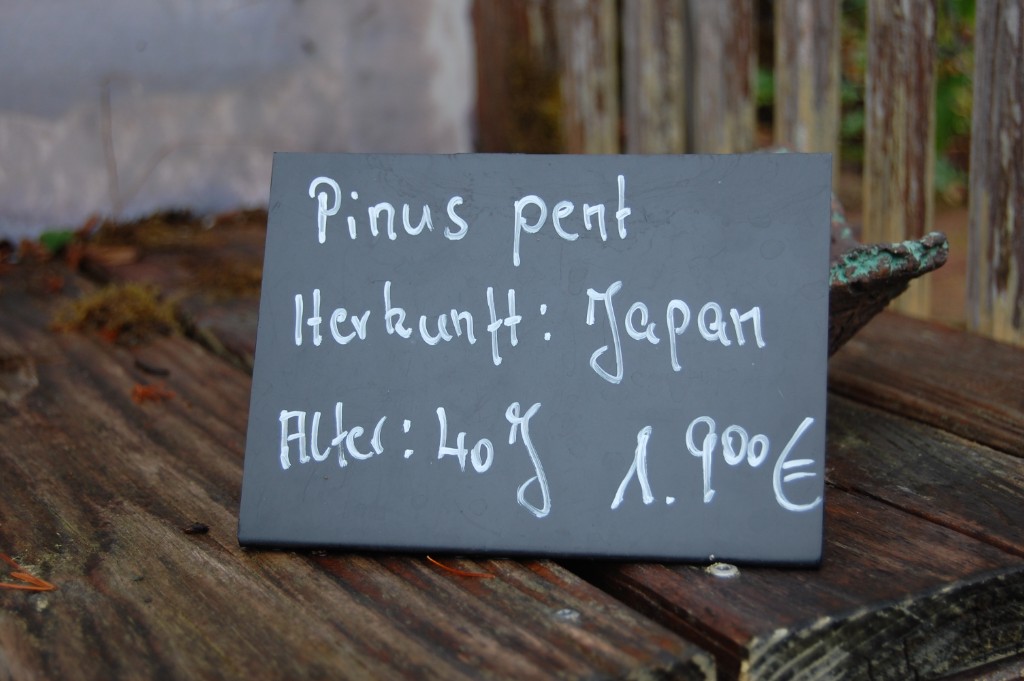 Pinus pent
Herkunft: Japan
Alter: 40 J 1.900€